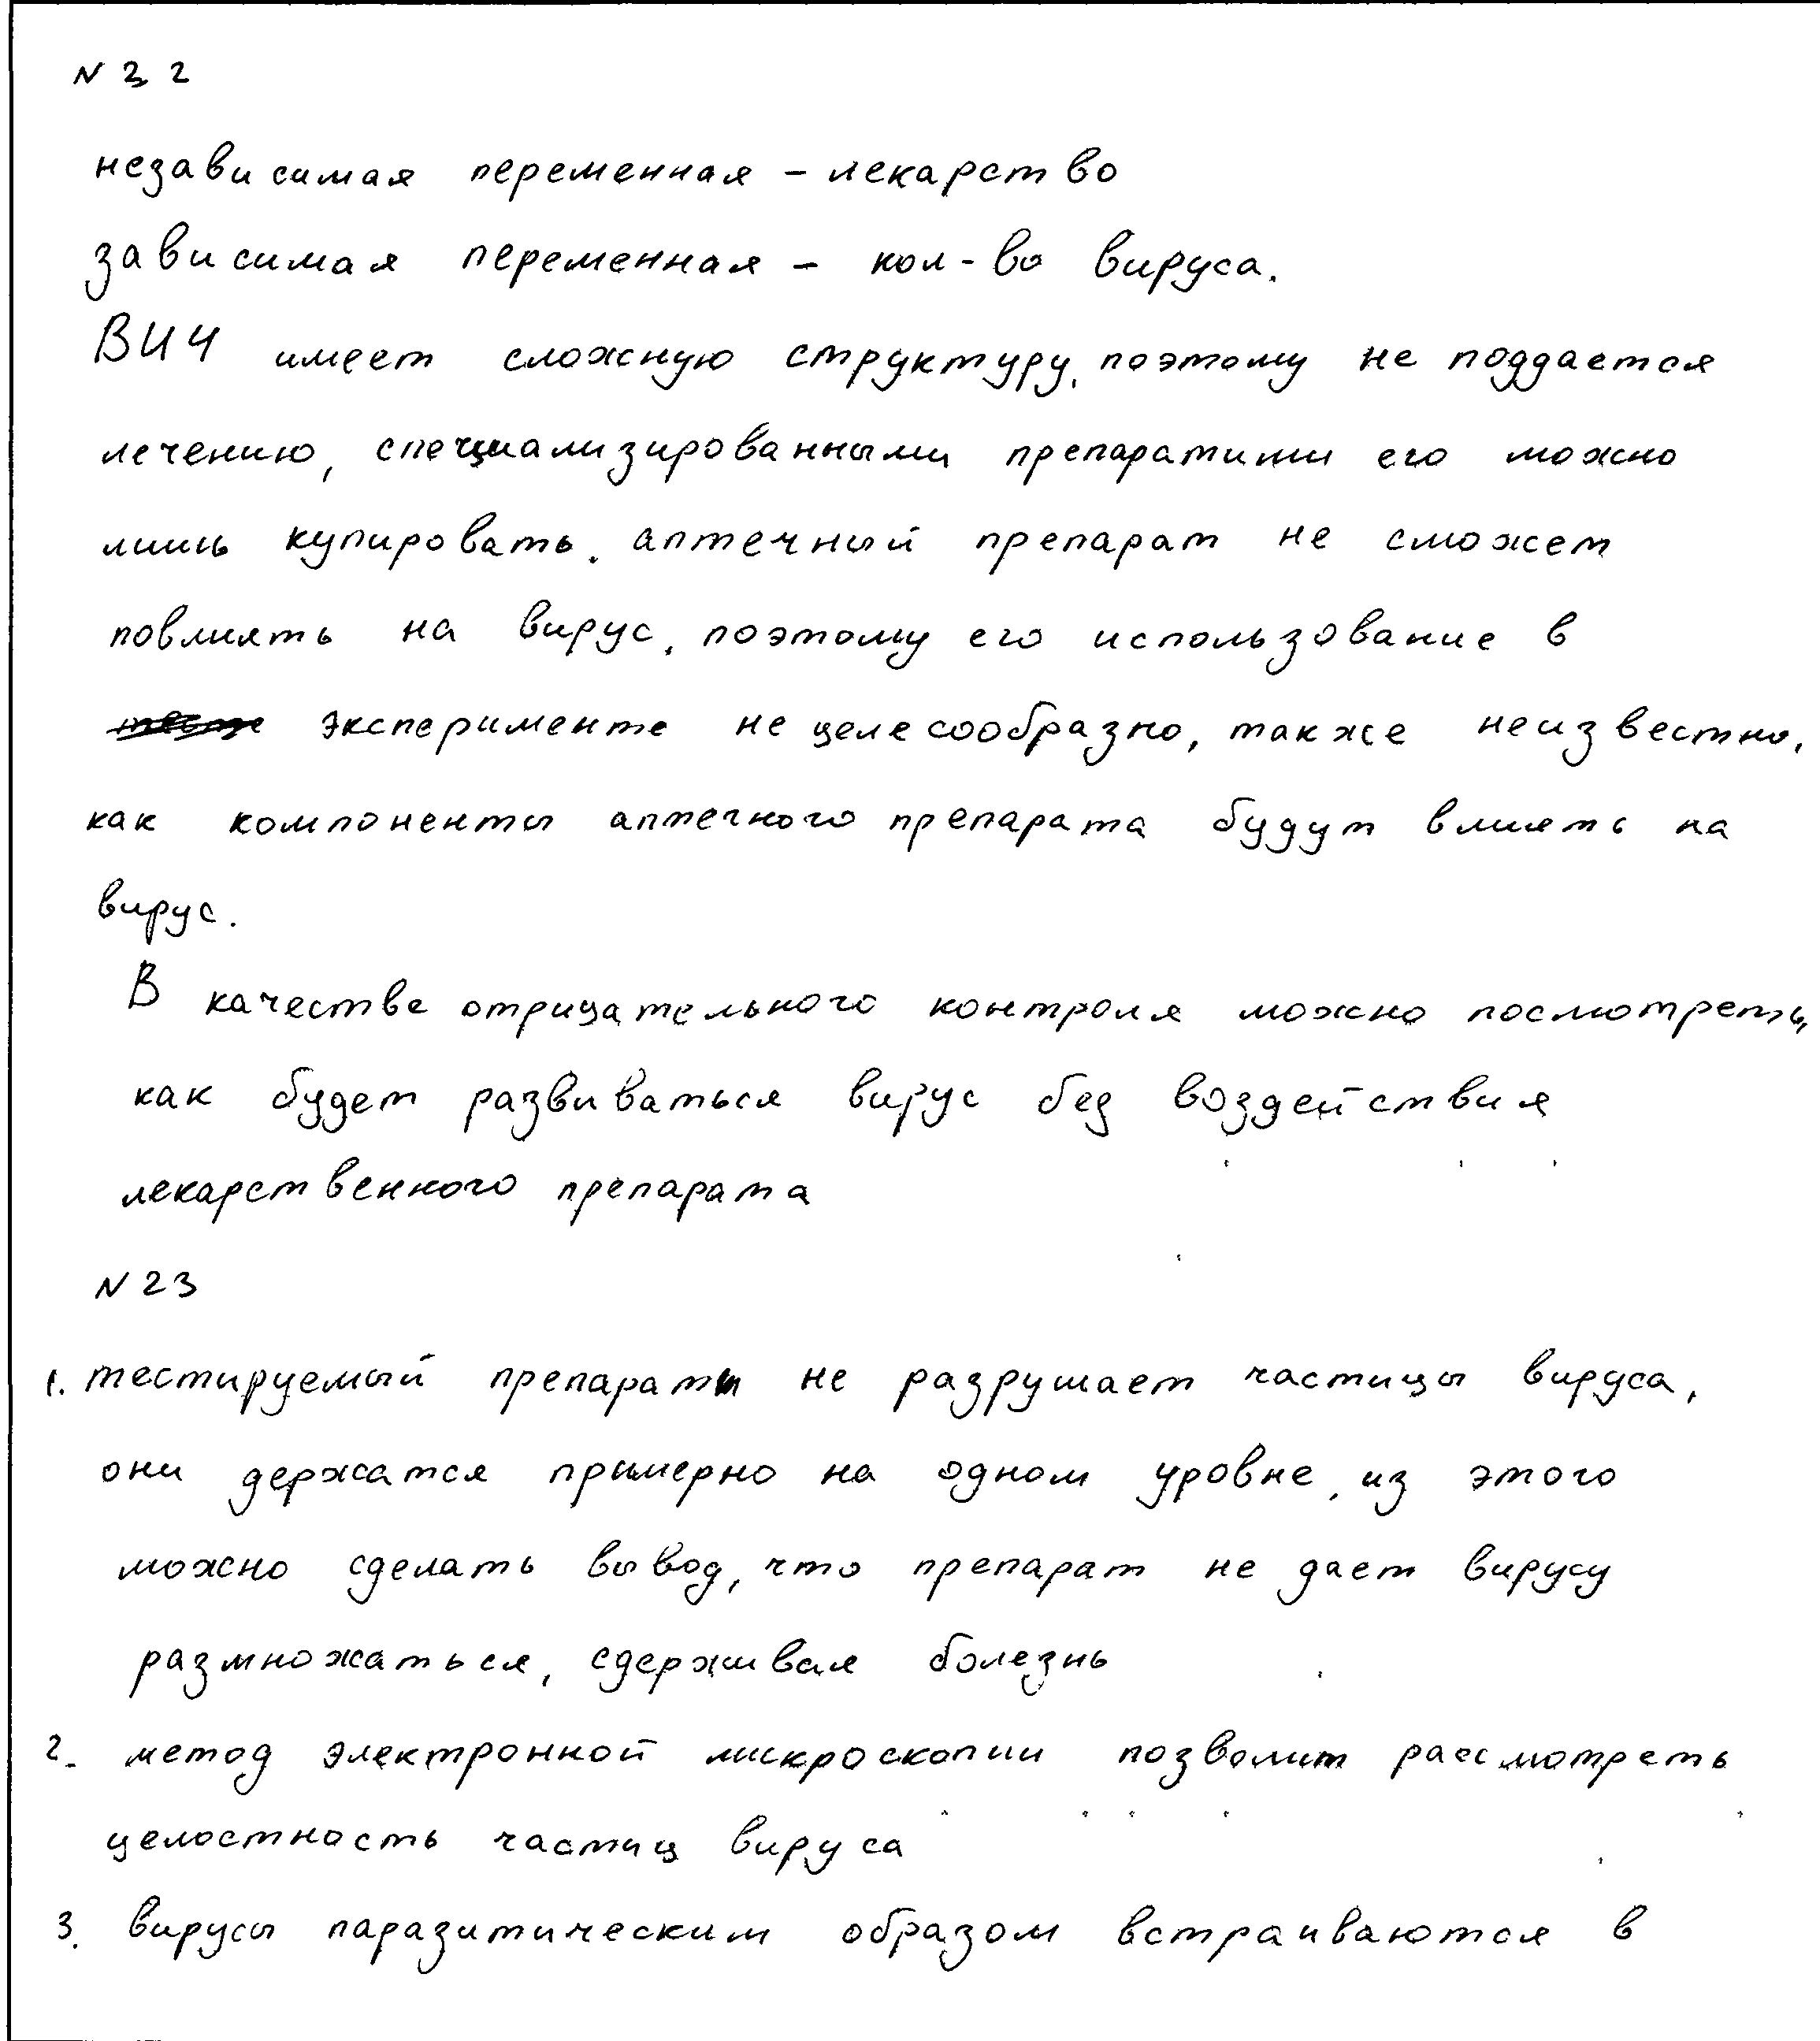 N 22
независимая переменная – лекарство
зависимая переменная – кол-во вируса.
ВИЧ имеет сложную структуру, поэтому не поддается
лечению, специализированными препаратими его можно
лишь купировать. аптечный препарат не сможет
повлиять на вирус, поэтому его использование в
эксперименте не целесообразно, также неизвестно,
как компоненты аптечного препарата будут влиять на
вирус.
В качестве отрицательного контроля можно посмотреть,
как будет развиваться вирус без воздействия
лекарственного препарата
N 23
1. тестируемый препарат не разрушает частицы вируса,
они держатся примерно на одном уровне, из этого
можно сделать вывод, что препарат не дает вирусу
размножаться, сдерживая болезнь
2. метод электронной микроскопии позволит рассмотреть
целостность частиц вируса
3. вирусы паразитическим образом встраиваются в